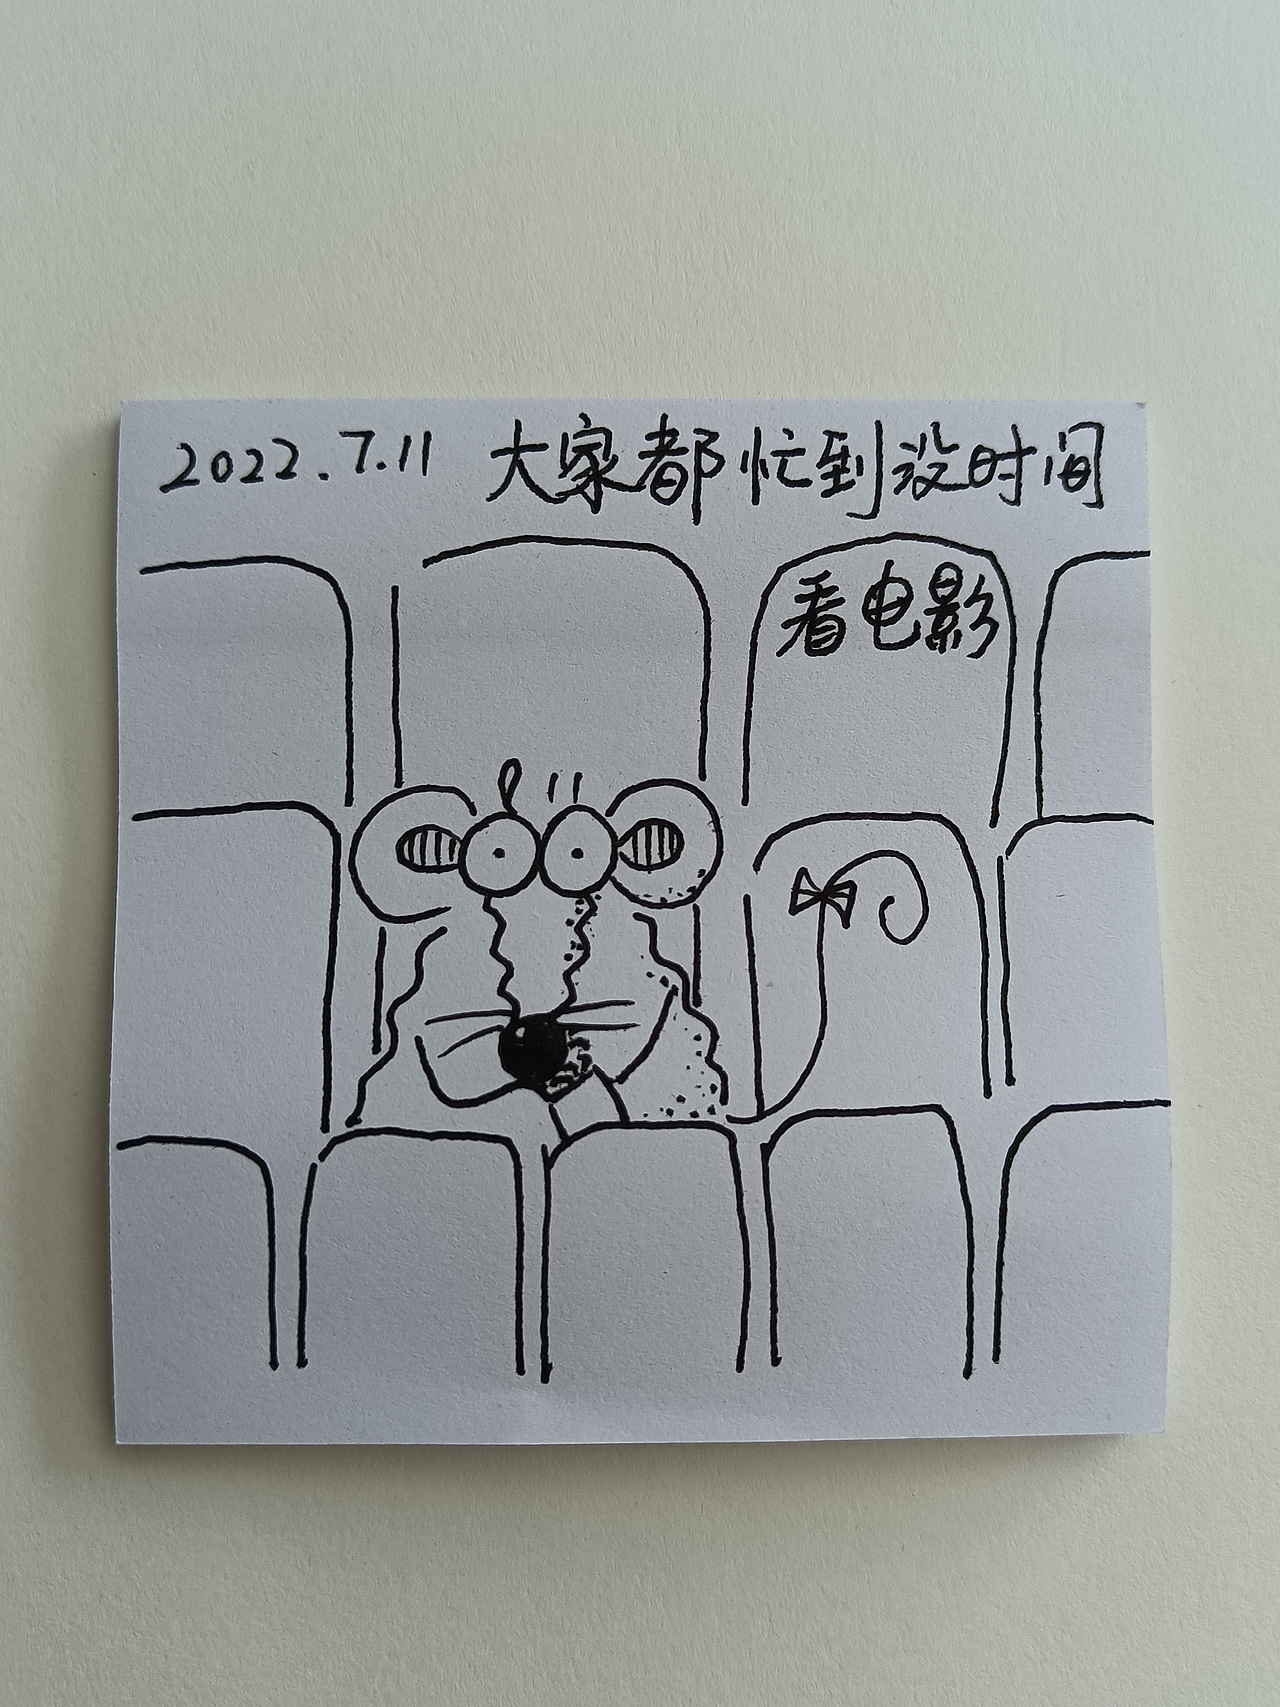 2022.7.11 大家都忙到没时间
看电影